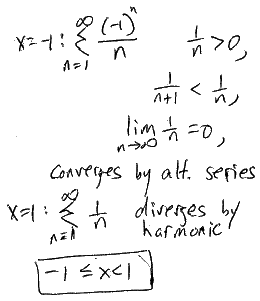 x=-1: ∞Σn=1 (-1)^n/n 1/n >0,
1/(n+1) < 1/n,
lim n→∞ 1/n =0,
Converges by alt. series
x=1: ∞Σn=1 1/n diverges by
harmonic
-1 ≤ x<1